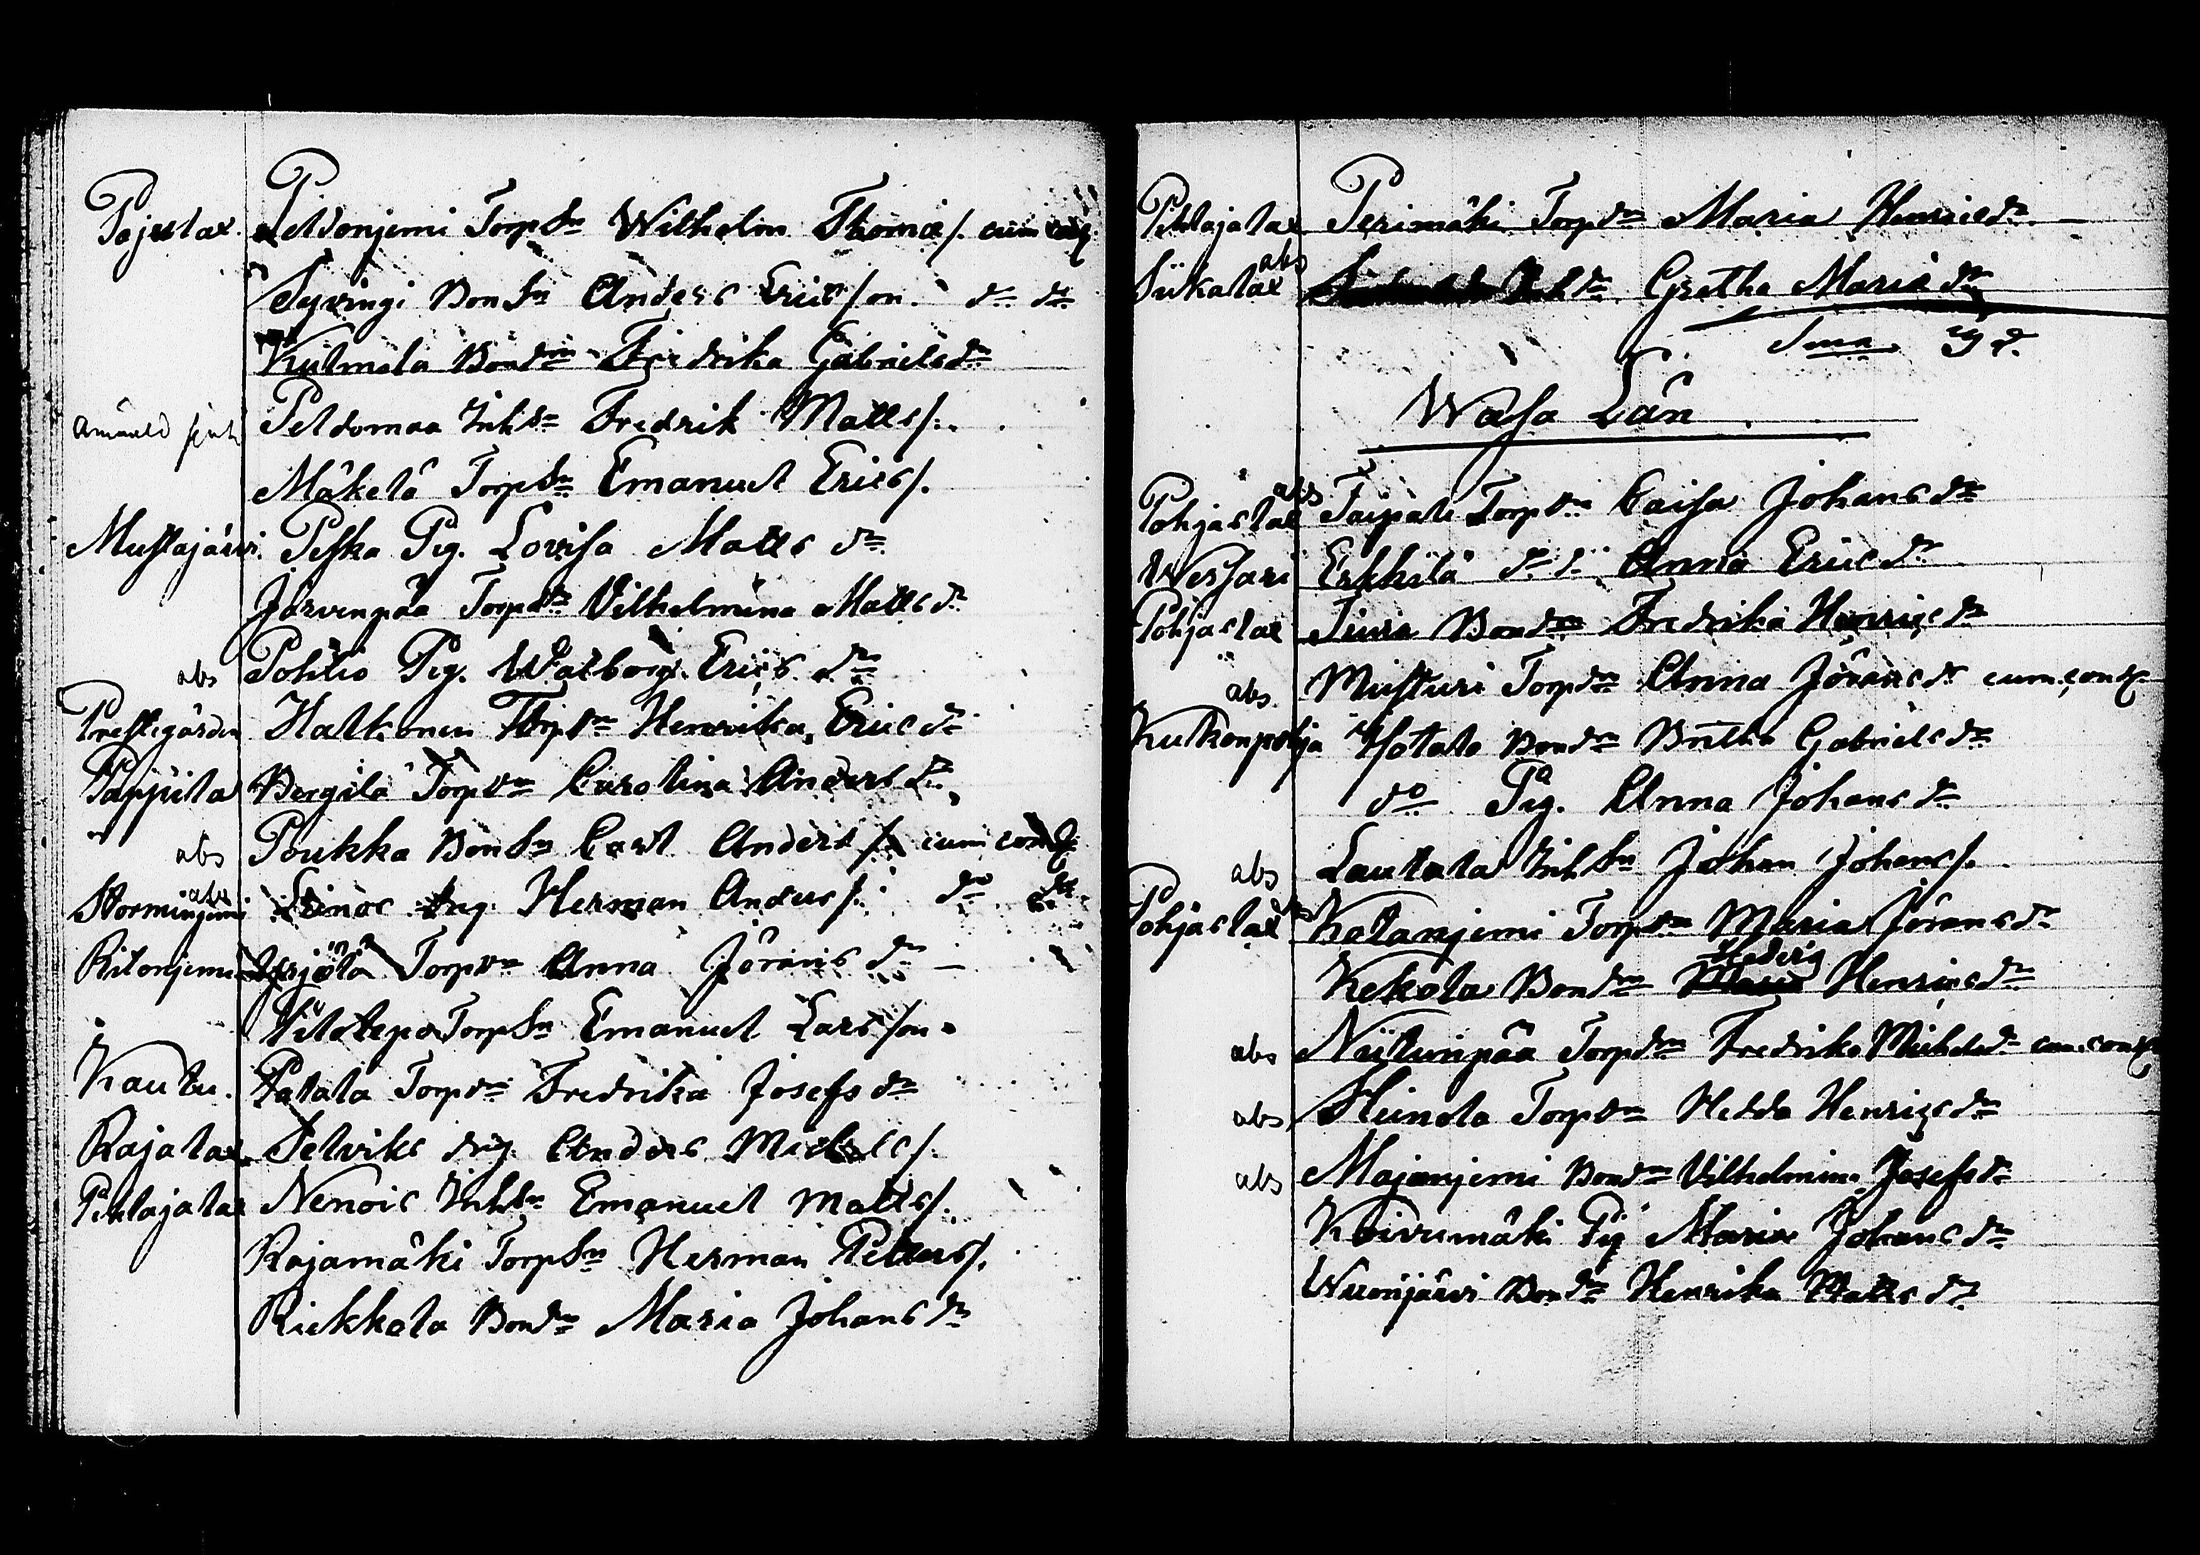 Pajuslax Peldonjemi TorpSn Wilhelm Thomæs/. cum conj
Syvingi BonSn Anders Ericsson. do do
Kulmala Bondrn Fredrika Gabrielsdr
Anmäld sjuk Peldomaa InhSn Fredrik Matts/.
Mäkelä TorpSn Emanuel Erics/.
Mustajärvi Peska Pig. Lovisa Matts dr
Järvenpää Torpdrn Vilhelmina Mattsdr
abs Pohtio Pig. Walborg Erics dr
Prestegården Halkonen Torpdrn Henrika Ericsdr
Pappila Bergilä Torpdrn Carolina Andersdr
abs Poukka BonSn Carl Anders/. cum conj
Storminjemi abs Leinoc drg Herman Anders/. do do
Ritonjemi Yrjölä Torpdrn Anna Jörans dr
TorpSn Emanuel Larsson
Kautu. Patala Torpdrn Fredrika Josefsdr
Rajalax Selviks drg. Anders Michels/.
Pihlajalax Nenois InhSn Emanuel Matts/.
Rajamäki TorpSn Herman Petters/.
Riekkola Bondrn Maria Johansdr
Pihlajalax Perimäki Torpdrn Maria Henricsdr
Siikalax abs Inhdrn Gretha Mariædr
Sma
Wasa Län
Pohjaslax abs Taipale Torpdrn Caisa Johansdr
Wessari Erkkilä do do Anna Ericsdr
Pohjaslax Bondrn Fredrika Henricsdr
abs. Musturi Torpdrn Anna Jöransdr cum conj
Kulkonpohja Hotala Bondrn Britha Gabrielsdr
do Pig. Anna Johansdr
abs Lautala InhSn Johan Johans/.
Pohjaslax abs Kotanjemi Torpdrn Maria Jöransdr
Kekola Bondrn Hedvig Henricsdr
abs Niitunpää Torpdrn Fredrika Michelsdr cum conj
abs Heinola Torpdrn Hedda Henricsdr
abs Majanjemi Bondrn Vilhelmina Josefsdr
Koivumäki Pig Maria Johansdr
Wuonjärvi Bondrn Henrika Mattsdr